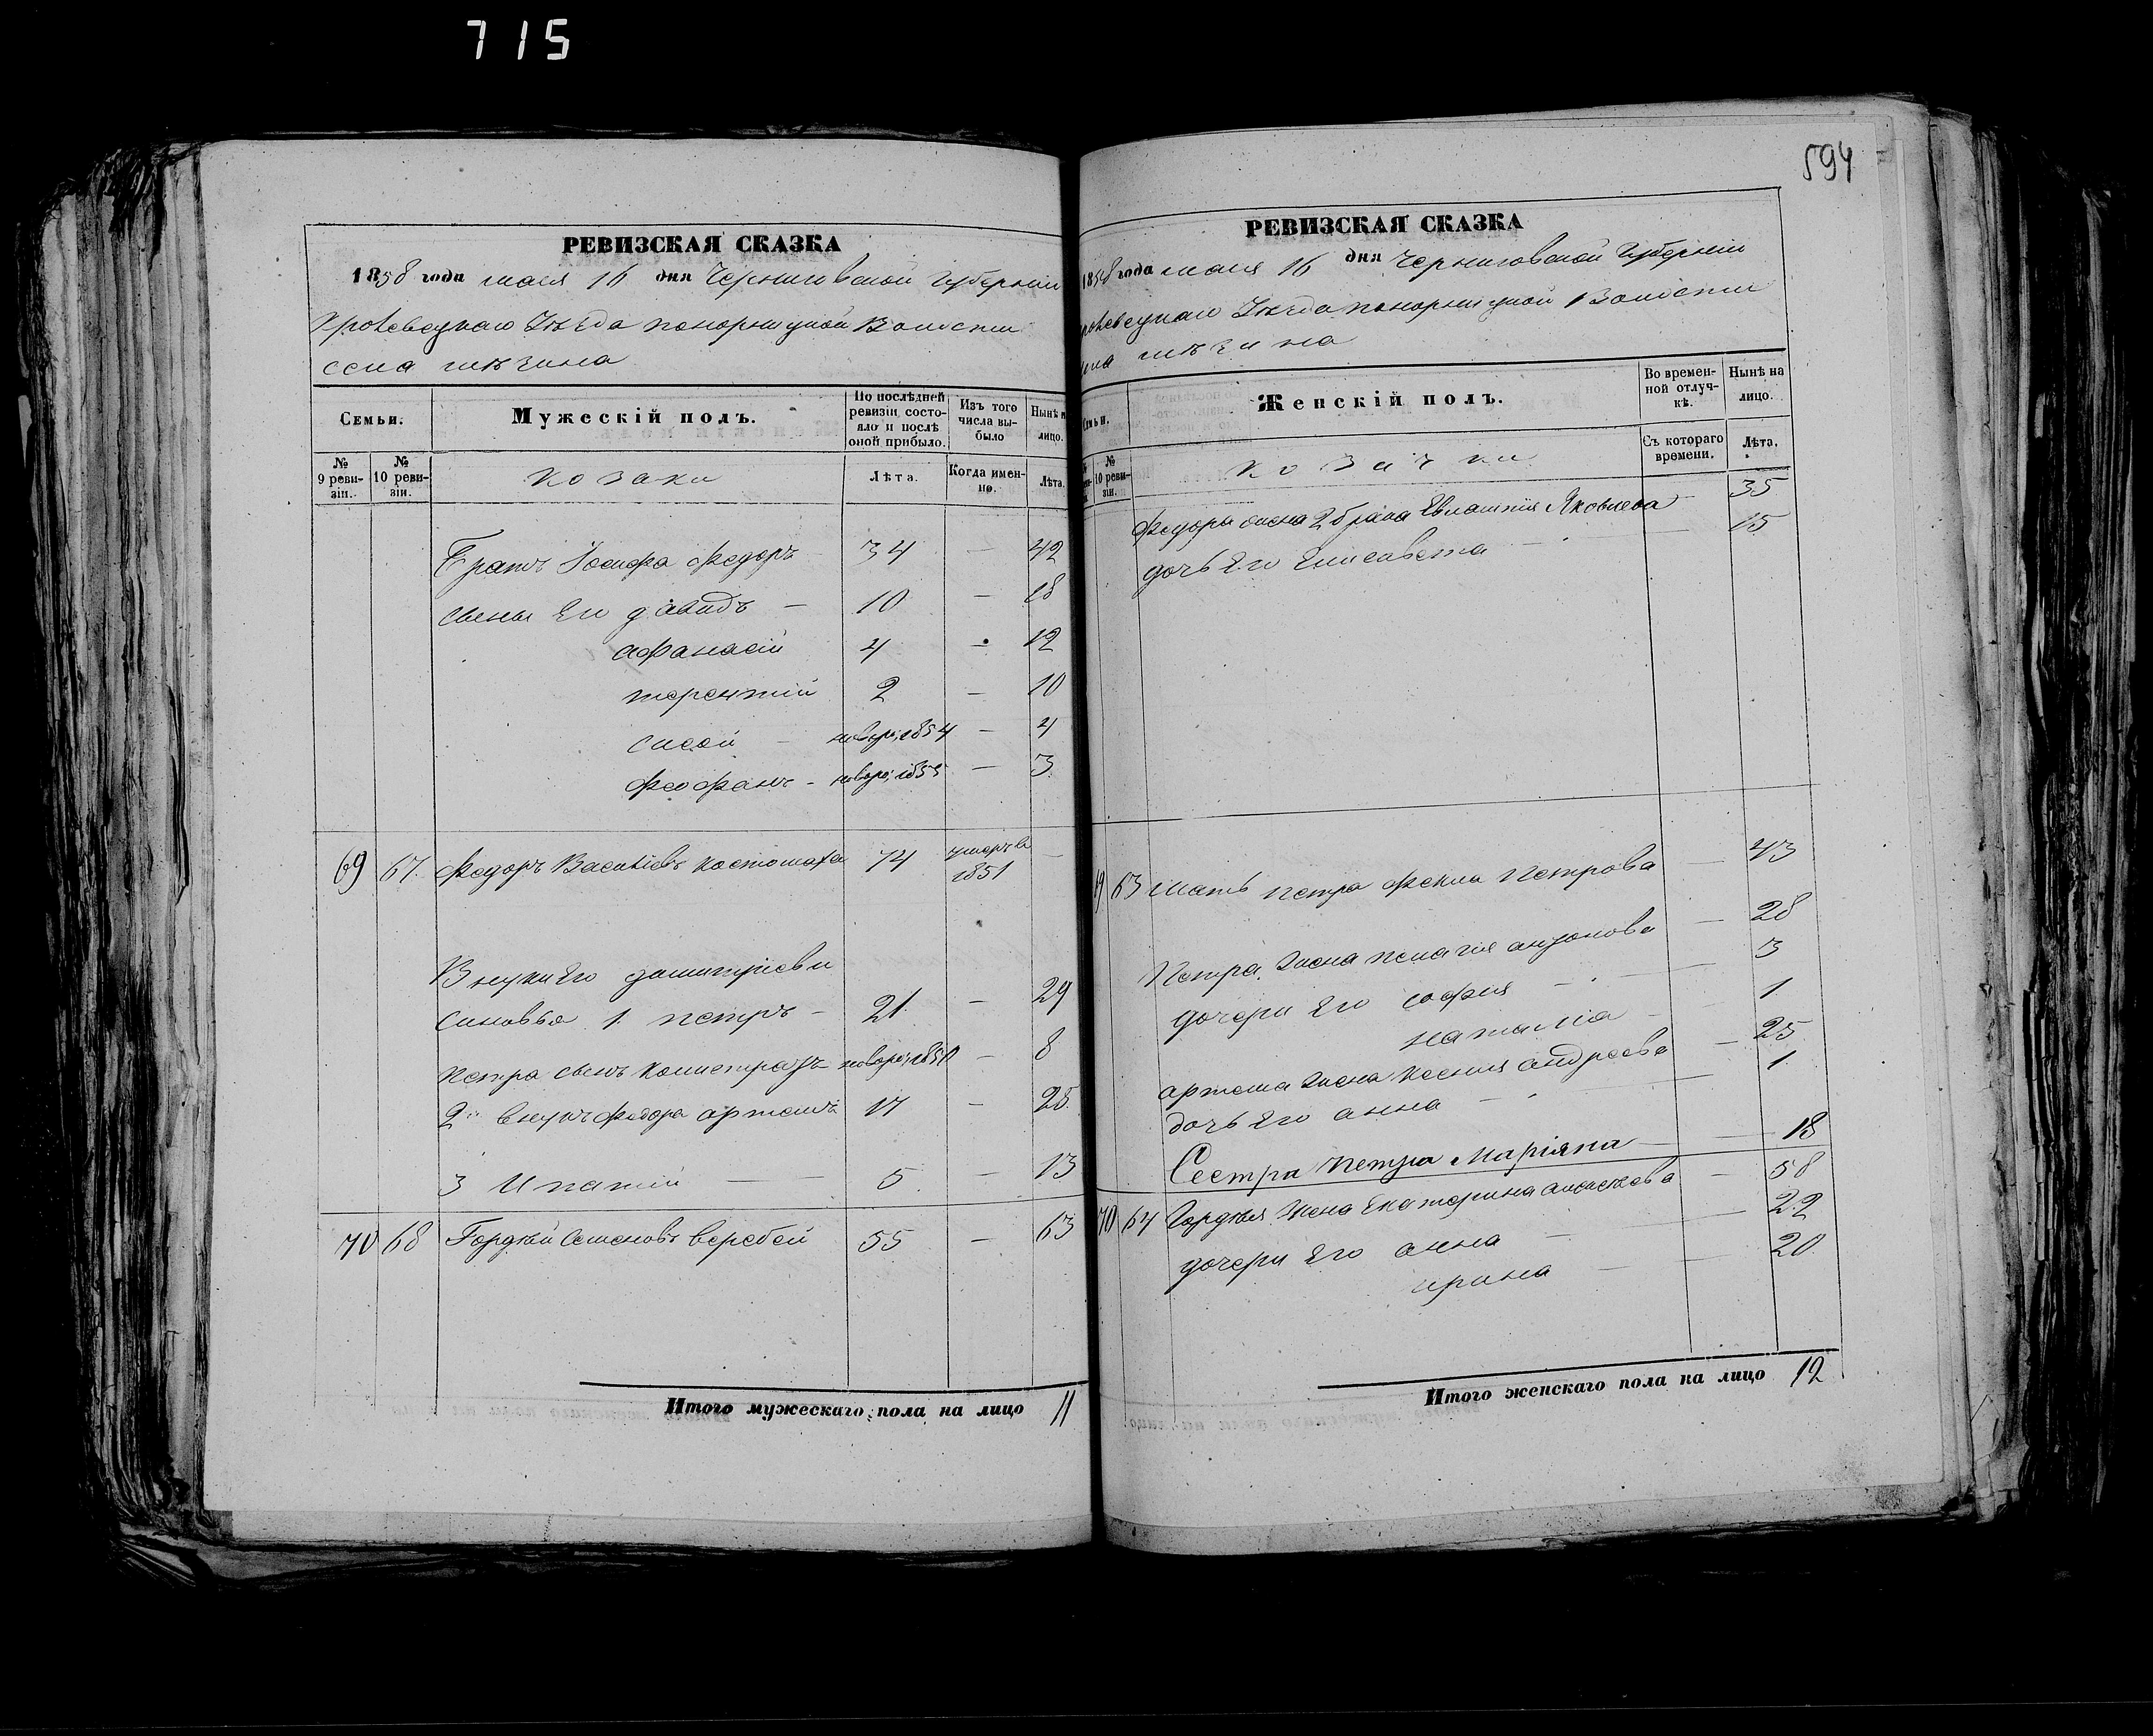 715
594
РЕВИЗСКАЯ СКАЗКА
1858 года мая 16 дня Черниговской Губерніи
Кролевецкаго Уѣзда понорницкой Волости
села мѣзина
Семьи.
Мужескій полъ.
По послѣдней ревизіи состояло и послѣ оной прибыло.
Изъ того числа выбыло
Нынѣ на лицо.
№ 9 ревизіи.
№ 10 ревизіи.
козаки
Лѣта.
Когда именно.
Лѣта.
Братъ Іосифа Федоръ 34 — 42
сыны Его давидъ — 10 — 18
афанасій 4 — 12
терентій 2 — 10
сисой — новоро; 1854 — 4
Феофанъ - новоро; 1855 — 3
69 67. Федоръ Васильевъ костомаха 74 умеръ въ 1851 —
Внуки Его дмитріевы
синовья 1. петръ — 21. — 29
петра сынъ калистратъ новоро; 1850 — 8
2й внукъ Федора артемъ 17 — 25
3 Ипатій — 5. — 13
70 68 Гордѣй Семеновъ веребей 55 — 63
Итого мужескаго пола на лицо 11
РЕВИЗСКАЯ СКАЗКА
1858 года мая 16 дня Черниговской Губерніи
Кролевецкаго Уѣзда понорницкой Волости
села мѣзина
Семьи.
Женскій полъ.
Во временной отлучкѣ.
Нынѣ на лицо.
№ 10 ревизіи.
козачки
Съ котораго времени.
Лѣта.
Федора жена 2 брака Евлампія Яковлева — 35
дочь Его Елисавета — 15
69 63 мать петра Фекла Петрова — 43
Петра жена пелагия — 28
дочери Его софия — 3
наталія — 1
артема жена ксения андреева — 25
дочь Его анна — 1
Сестра петра Маріяна — 18
70 64 Гордѣя жена Екатерина алексѣева — 58
дочери Его анна — 22
ирина — 20
Итого женскаго пола на лицо 12